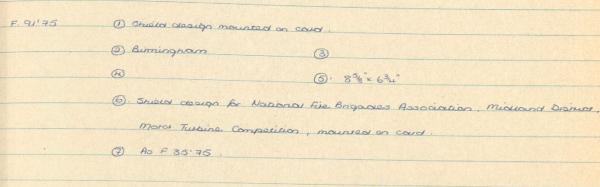 F. 91'75 ① Shield design mounted on card.
② Birmingham ③
④ ⑤. 8 5/8" x 6 3/4"
⑥. Shield design for National Fire Brigades Association, Midland District,
Motor Turbine Competition, mounted on card.
⑦ As F 35.75.